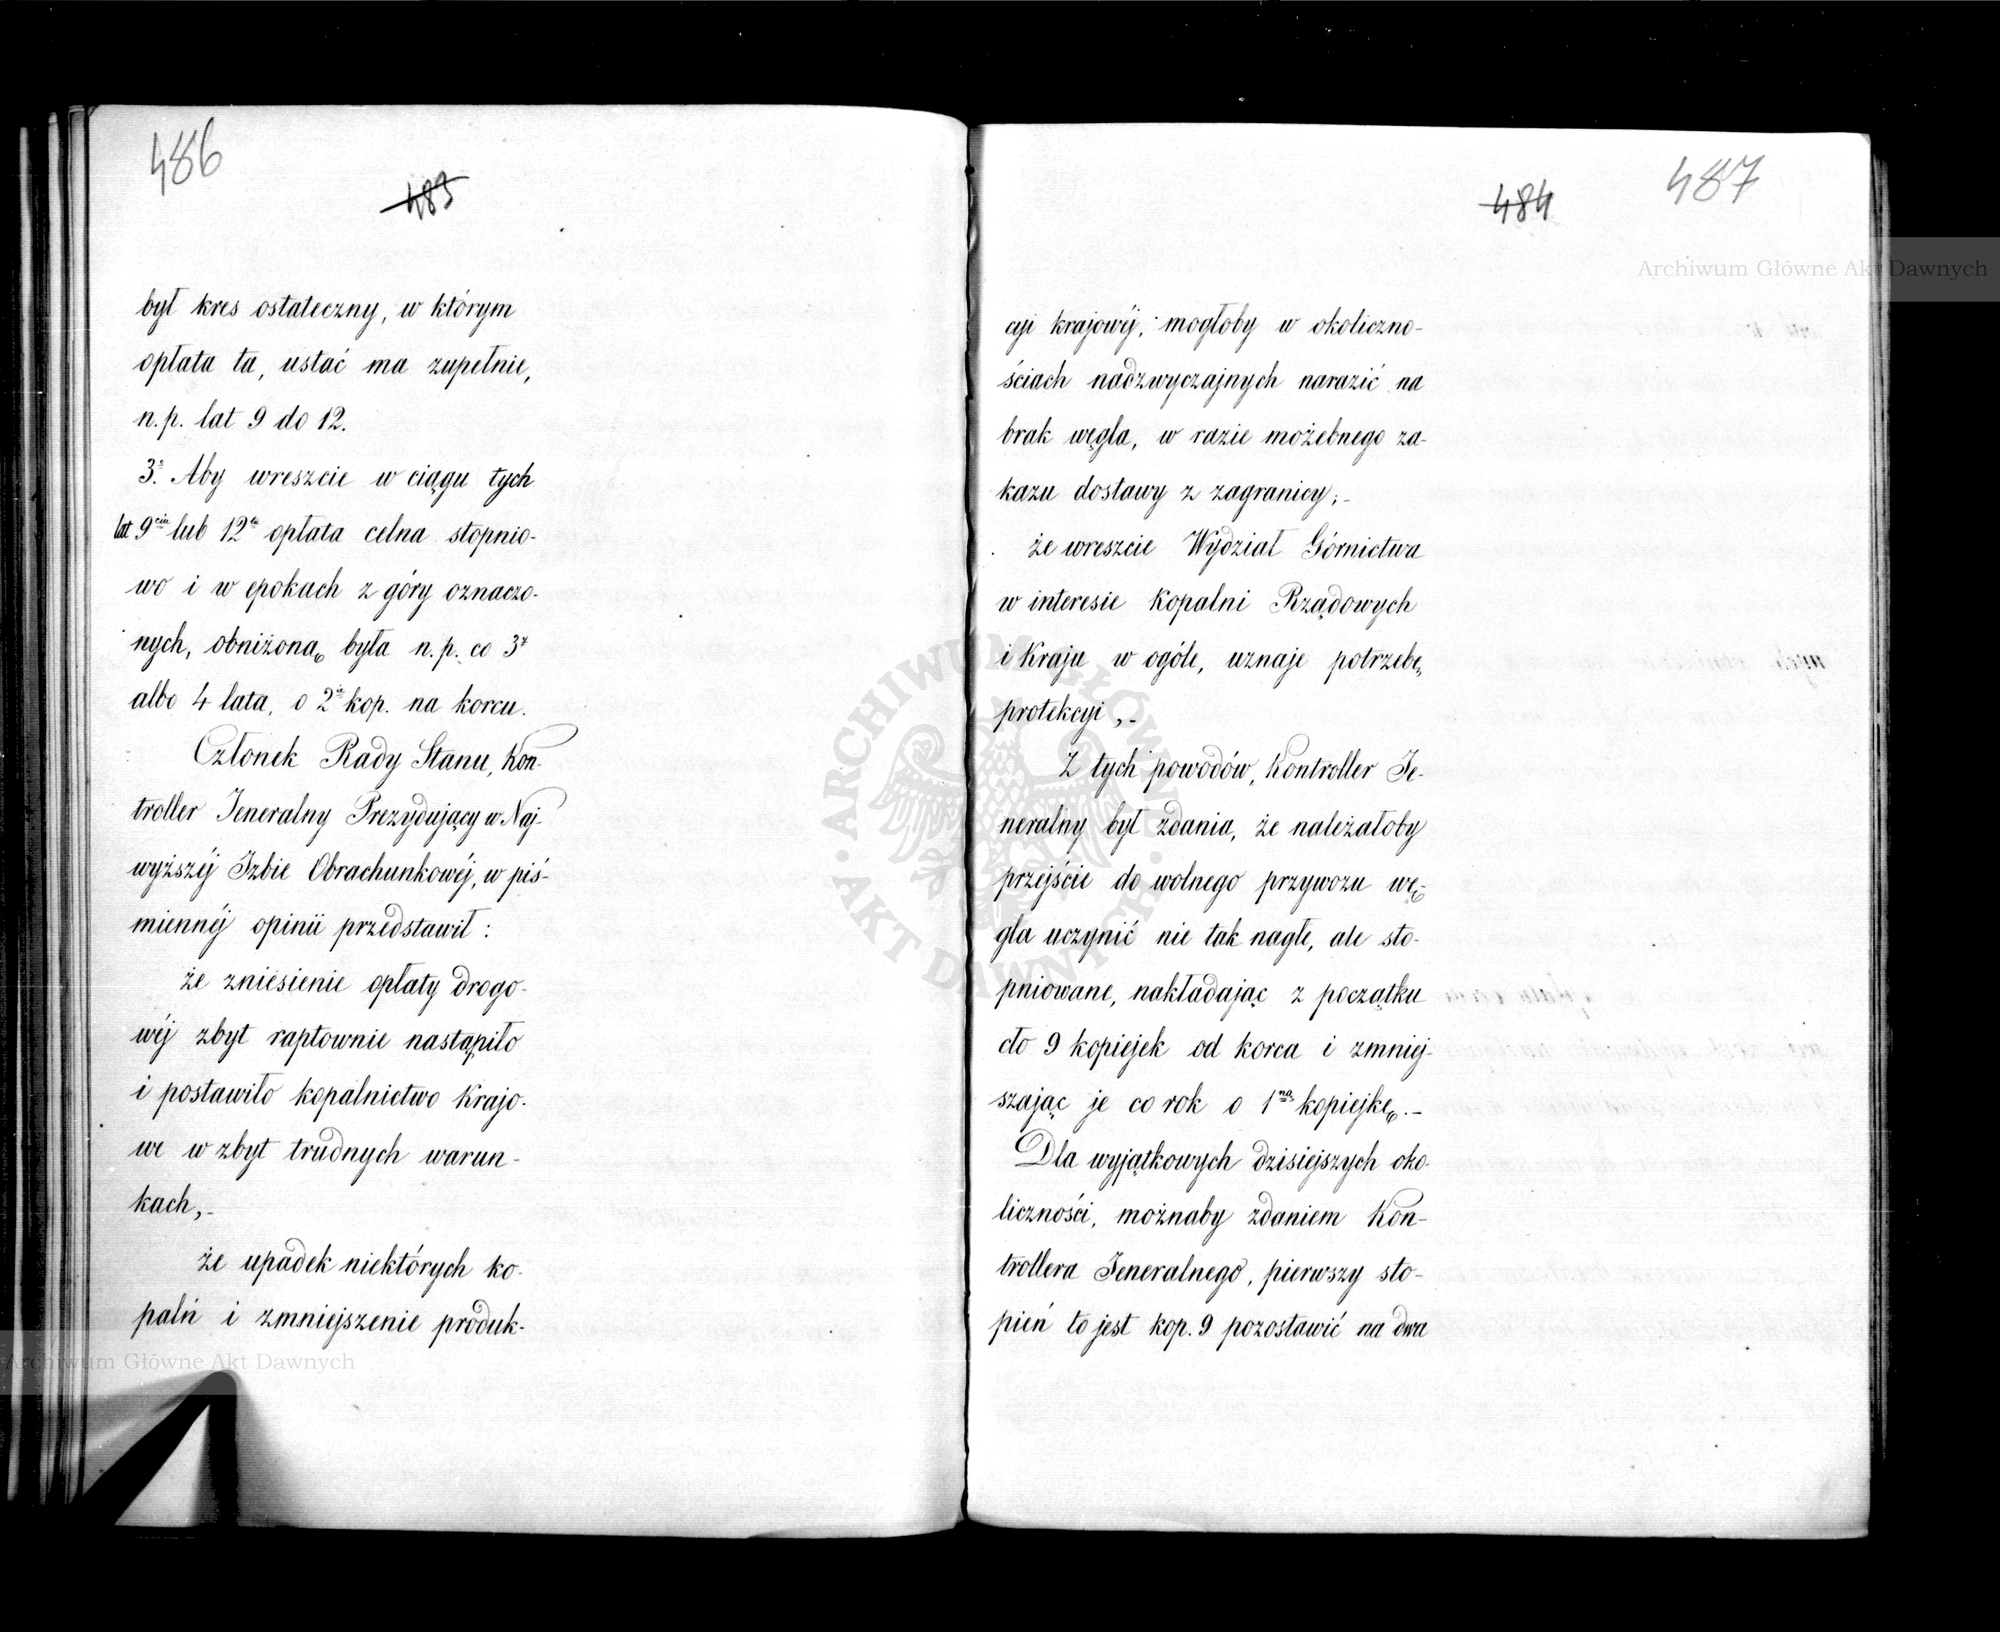 486
483
był kres ostateczny, w którym
opłata ta, ustać ma zupełnie,
n.p. lat 9 do 12.
3. Aby wreszcie w ciągu tych
lat 9ciu lub 12tu opłata celna stopnio-
wo i w epokach z góry oznaczo-
nych, obniżoną była n.p. co 3y
albo 4 lata, o 2ie kop. na korcu.
Członek Rady Stanu, Kon-
troller Jeneralny Prezydujący w Naj-
wyższéj Izbie Obrachunkowéj, w piś-
miennéj opinii przedstawił:
że zniesienie opłaty drogo-
wéj zbyt raptownie nastąpiło
i postawiło kopalnictwo Krajo-
we w zbyt trudnych warun-
kach,-
że upadek niektórych ko-
palń i zmniejszenie produk-
484
487
cyi krajowéj, mogłoby w okoliczno-
ściach nadzwyczajnych narazić na
brak węgla, w razie możebnego za-
kazu dostawy z zagranicy;-
że wreszcie Wydział Górnictwa
w interesie Kopalni Rządowych
i Kraju w ogóle, uznaje potrzebę
protekcyi,-
Z tych powodów, Kontroller Je-
neralny był zdania, że należałoby
przejście do wolnego przywozu wę-
gla uczynić nie tak nagłe, ale sto-
pniowane, nakładając z początku
cło 9 kopiejek od korca i zmniej-
szając je co rok o 1ną kopiejkę.-
Dla wyjątkowych dzisiejszych oko-
liczności, możnaby zdaniem Kon-
trollera Jeneralnego, pierwszy sto-
pień to jest kop. 9 pozostawić na dwa
Archiwum Główne Akt Dawnych
Archiwum Główne Akt Dawnych
ARCHIWUM GŁÓWNE AKT DAWNYCH